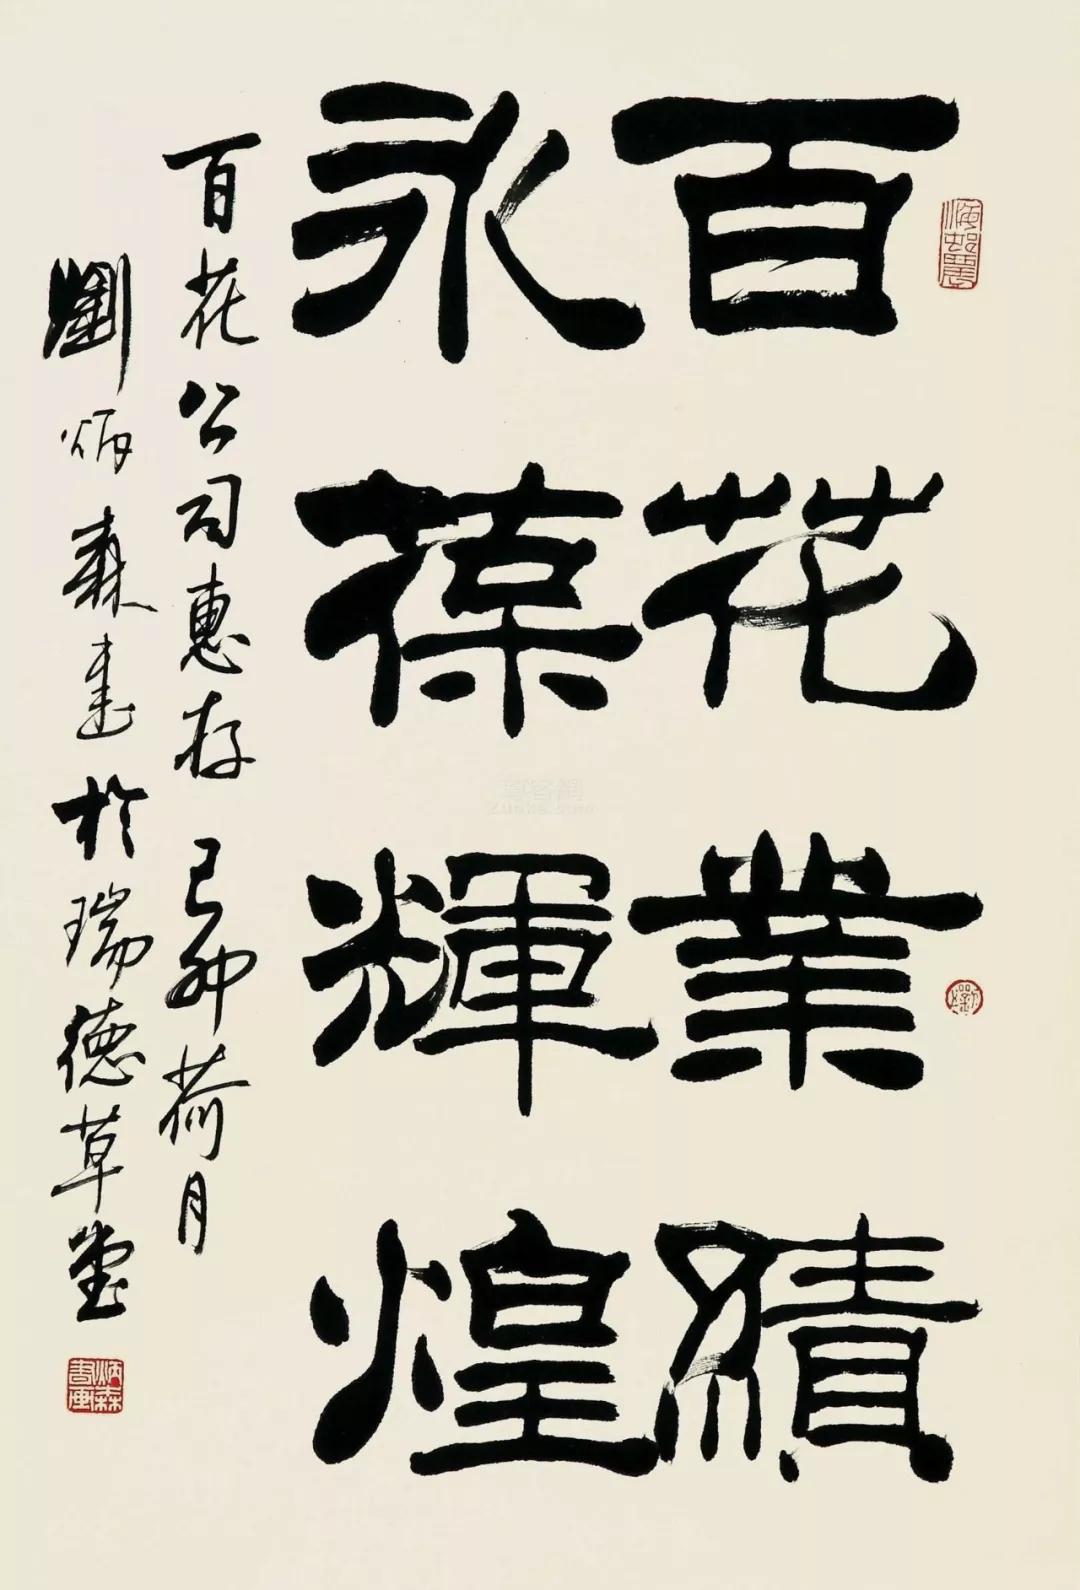 百花業績
永葆輝煌
百花公司惠存 己卯荷月
劉炳森書於瑞德草堂
炳森書画